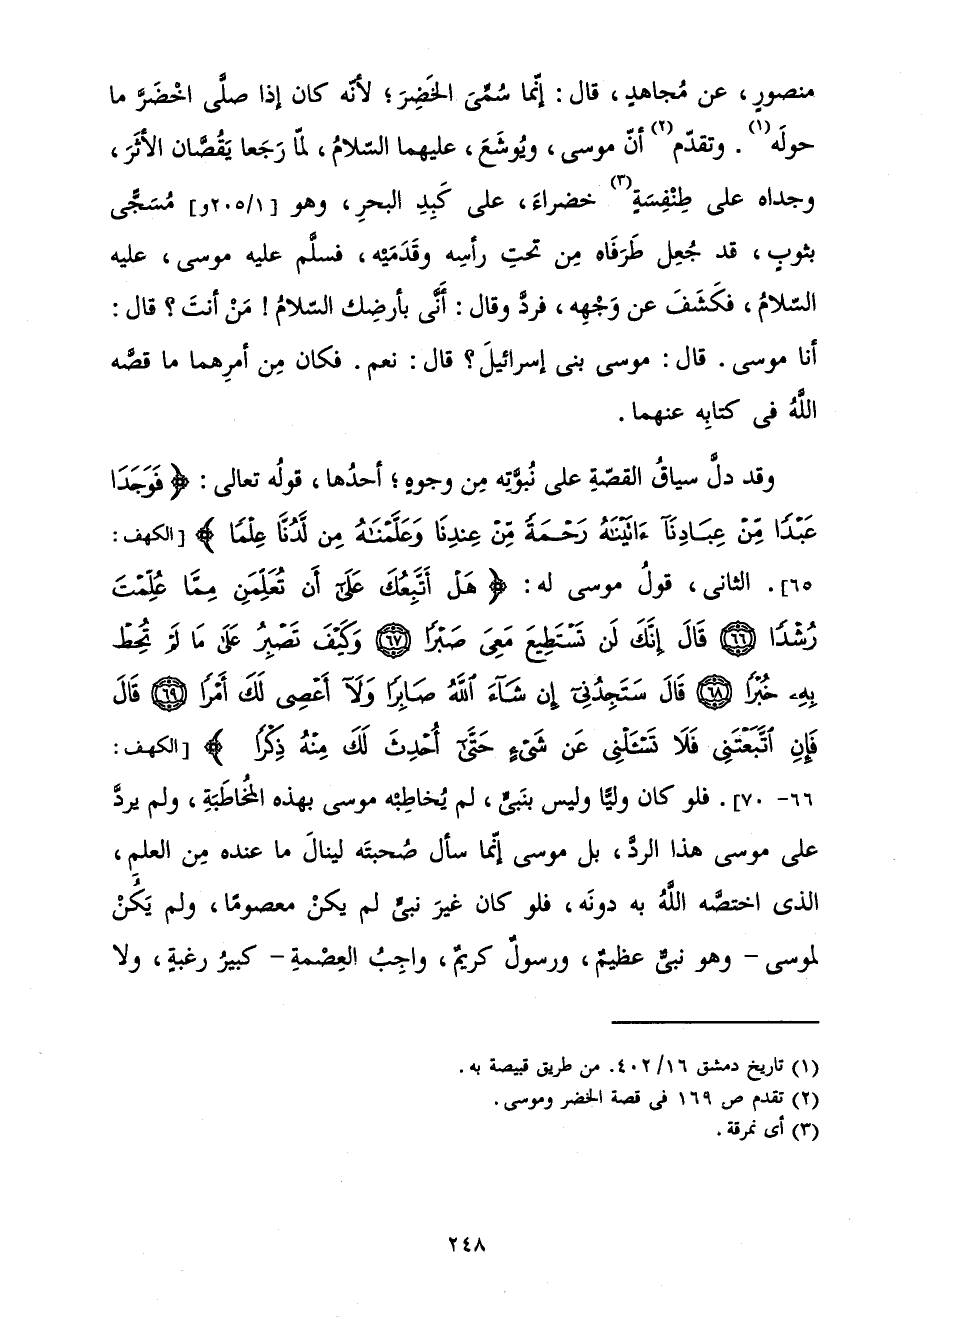 منصورٍ ، عن مُجاهدٍ ، قال : إنّما سُمِّىَ الخَضِرَ ؛ لأنّه كان إذا صلَّى اخْضَرَّ ما
حولَه(١) . وتقدّم(٢) أنّ موسى ، ويُوشَعَ ، عليهما السّلامُ ، لمّا رَجَعا يَقُصَّان الأثَرَ ،
وجداه على طِنْفِسَةٍ(٣) خضراءَ ، على كَبِدِ البحرِ ، وهو [٢٠٥/١و] مُسَجًّى
بثوبٍ ، قد جُعِل طَرَفَاه مِن تحتِ رأسِه وقَدَمَيْه ، فسلَّم عليه موسى ، عليه
السّلامُ ، فكَشَفَ عن وَجْهِه ، فردَّ وقال : أَنَّى بأرضِك السّلامُ ! مَنْ أنتَ ؟ قال :
أنا موسى . قال : موسى بنى إسرائيلَ ؟ قال : نعم . فكان مِن أمرِهما ما قصَّه
اللَّهُ فى كتابِه عنهما .
وقد دلَّ سياقُ القصّةِ على نُبوَّتِه مِن وجوهٍ ؛ أحدُها ، قولُه تعالى : ﴿ فَوَجَدَا
عَبْدًا مِّنْ عِبَادِنَآ ءَاتَيْنَٰهُ رَحْمَةً مِّنْ عِندِنَا وَعَلَّمْنَٰهُ مِن لَّدُنَّا عِلْمًا ﴾ [ الكهف :
٦٥] . الثانى ، قولُ موسى له : ﴿ هَلْ أَتَّبِعُكَ عَلَىٰٓ أَن تُعَلِّمَنِ مِمَّا عُلِّمْتَ
رُشْدًا ۝٦٦ قَالَ إِنَّكَ لَن تَسْتَطِيعَ مَعِىَ صَبْرًا ۝٦٧ وَكَيْفَ تَصْبِرُ عَلَىٰ مَا لَمْ تُحِطْ
بِهِۦ خُبْرًا ۝٦٨ قَالَ سَتَجِدُنِىٓ إِن شَآءَ ٱللَّهُ صَابِرًا وَلَآ أَعْصِى لَكَ أَمْرًا ۝٦٩ قَالَ
فَإِنِ ٱتَّبَعْتَنِى فَلَا تَسْـَٔلْنِى عَن شَىْءٍ حَتَّىٰٓ أُحْدِثَ لَكَ مِنْهُ ذِكْرًا ﴾ [ الكهف :
٦٦ - ٧٠] . فلو كان وليًّا وليس بنَبىٍّ ، لم يُخاطِبْه موسى بهذه المُخاطَبَةِ ، ولم يردَّ
على موسى هذا الردَّ ، بل موسى إنّما سأل صُحبتَه لينالَ ما عنده مِن العلمِ ،
الذى اختصَّه اللَّهُ به دونَه ، فلو كان غيرَ نبىٍّ لم يكنْ معصومًا ، ولم يَكُنْ
لموسى - وهو نبىٌّ عظيمٌ ، ورسولٌ كريمٌ ، واجِبُ العِصْمةِ - كبيرُ رغبةٍ ، ولا
(١) تاريخ دمشق ٤٠٢/١٦ . من طريق قبيصة به .
(٢) تقدم ص ١٦٩ فى قصة الخضر وموسى .
(٣) أى نمرقة .
٢٤٨